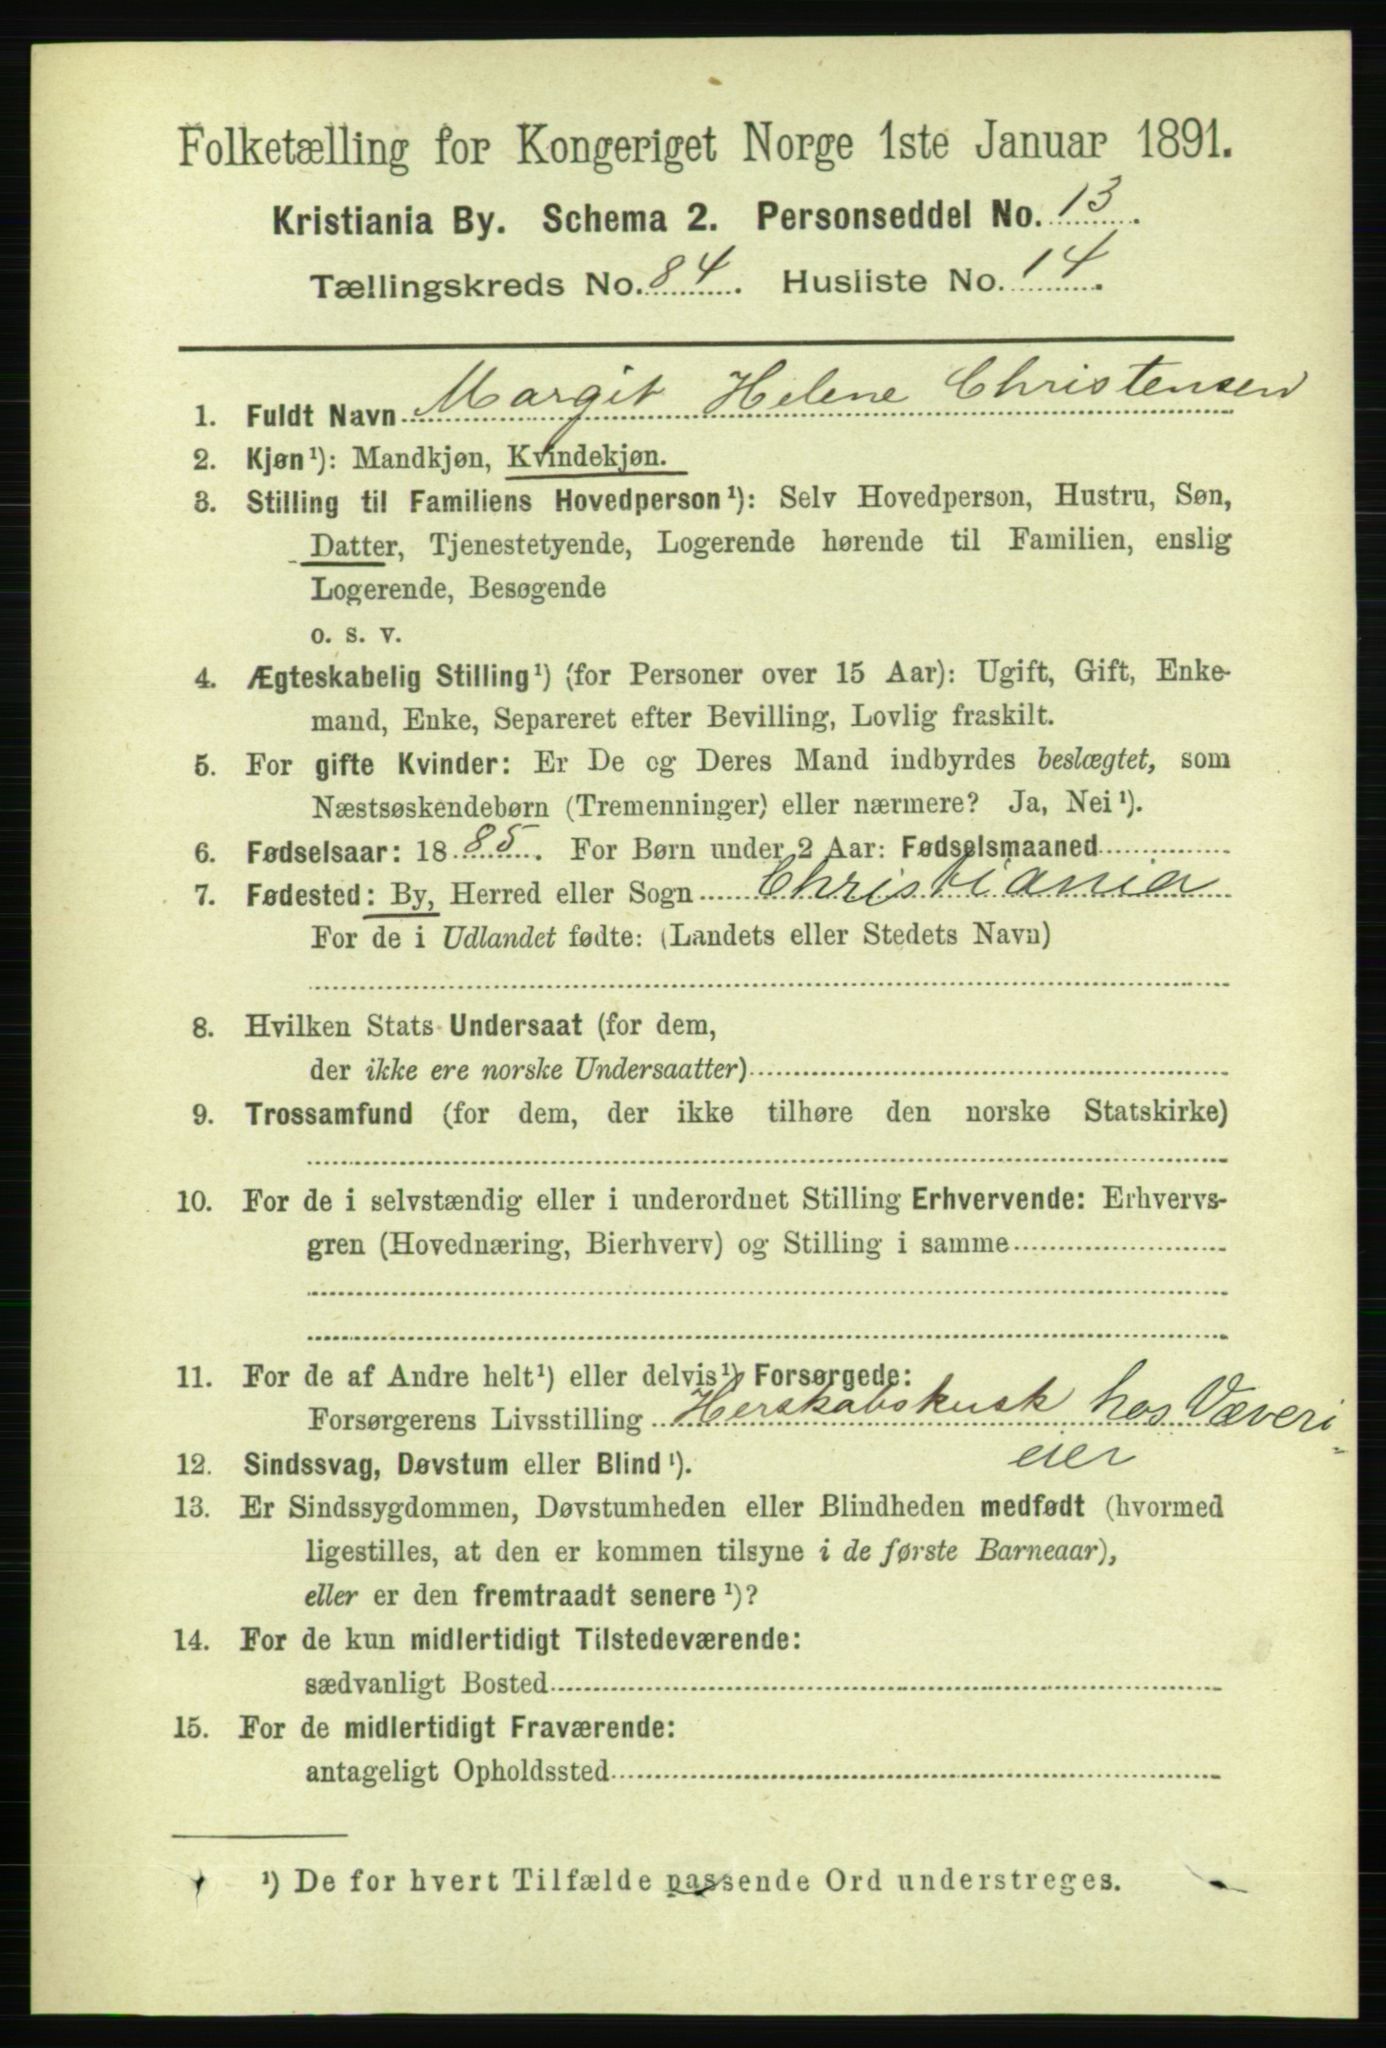 Folketælling for Kongeriget Norge 1ste Januar 1891.
Kristiania By. Schema 2. Personseddel No. 13.
Tællingskreds No. 84. Husliste No. 14.
1. Fuldt Navn Margit Helene Christensen
2. Kjøn¹): Mandkjøn, Kvindekjøn.
3. Stilling til Familiens Hovedperson¹): Selv Hovedperson, Hustru, Søn,
Datter, Tjenestetyende, Logerende hørende til Familien, enslig
Logerende, Besøgende
o. s. v.
4. Ægteskabelig Stilling¹) (for Personer over 15 Aar): Ugift, Gift, Enke-
mand, Enke, Separeret efter Bevilling, Lovlig fraskilt.
5. For gifte Kvinder: Er De og Deres Mand indbyrdes beslægtet, som
Næstsøskendebørn (Tremenninger) eller nærmere? Ja, Nei¹).
6. Fødselsaar: 1885. For Børn under 2 Aar: Fødselsmaaned
7. Fødested: By, Herred eller Sogn Christiania
For de i Udlandet fødte: (Landets eller Stedets Navn)
8. Hvilken Stats Undersaat (for dem,
der ikke ere norske Undersaatter)
9. Trossamfund (for dem, der ikke tilhøre den norske Statskirke)
10. For de i selvstændig eller i underordnet Stilling Erhvervende: Erhvervs-
gren (Hovednæring, Bierhverv) og Stilling i samme
11. For de af Andre helt¹) eller delvis¹) Forsørgede:
Forsørgerens Livsstilling Herskabskusk hos Væveri-
eier
12. Sindssvag, Døvstum eller Blind¹).
13. Er Sindssygdommen, Døvstumheden eller Blindheden medfødt (hvormed
ligestilles, at den er kommen tilsyne i de første Barneaar),
eller er den fremtraadt senere¹)?
14. For de kun midlertidigt Tilstedeværende:
sædvanligt Bosted
15. For de midlertidigt Fraværende:
antageligt Opholdssted
¹) De for hvert Tilfælde passende Ord understreges.